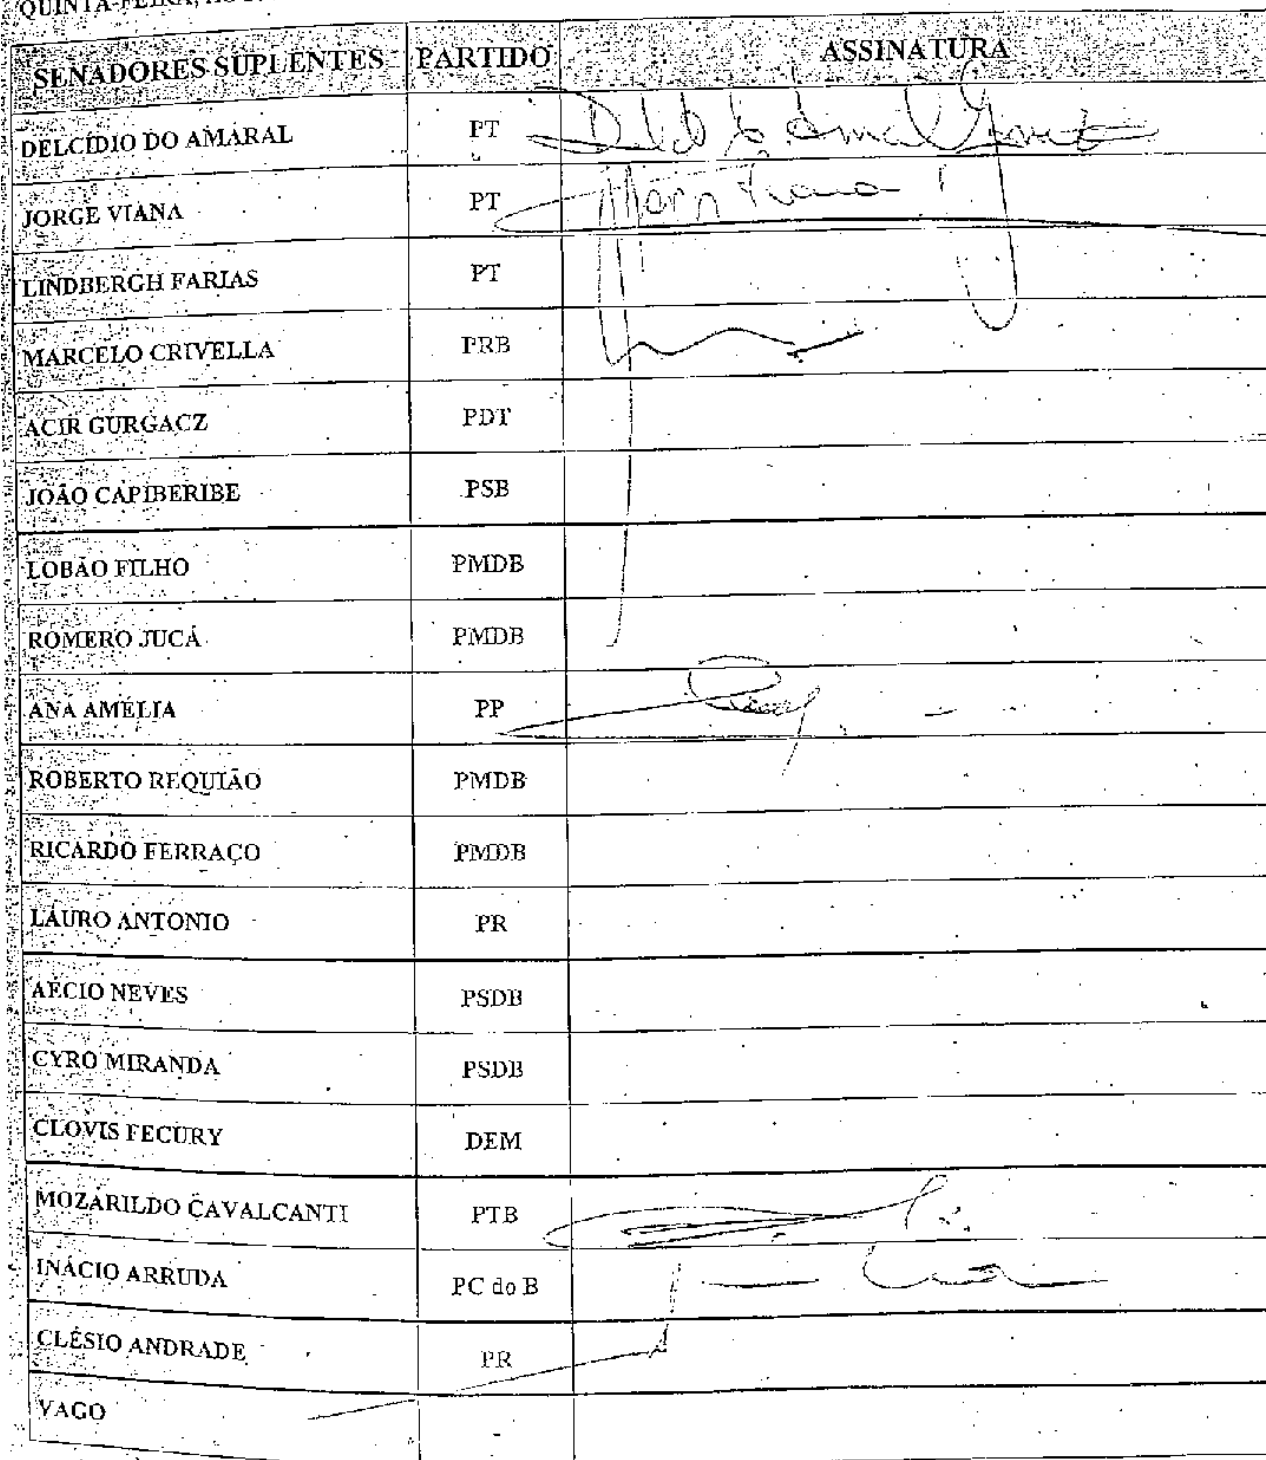 QUINTA-FEIRA,
SENADORES SUPLENTES PARTIDO ASSINATURA
DELCÍDIO DO AMARAL PT
JORGE VIANA PT
LINDBERGH FARIAS PT
MARCELO CRIVELLA PRB
ACIR GURGACZ PDT
JOÃO CAPIBERIBE PSB
LOBÃO FILHO PMDB
ROMERO JUCÁ PMDB
ANA AMÉLIA PP
ROBERTO REQUIÃO PMDB
RICARDO FERRAÇO PMDB
LAURO ANTONIO PR
AÉCIO NEVES PSDB
CYRO MIRANDA PSDB
CLOVIS FECURY DEM
MOZARILDO CAVALCANTI PTB
INÁCIO ARRUDA PC do B
CLÉSIO ANDRADE PR
VAGO